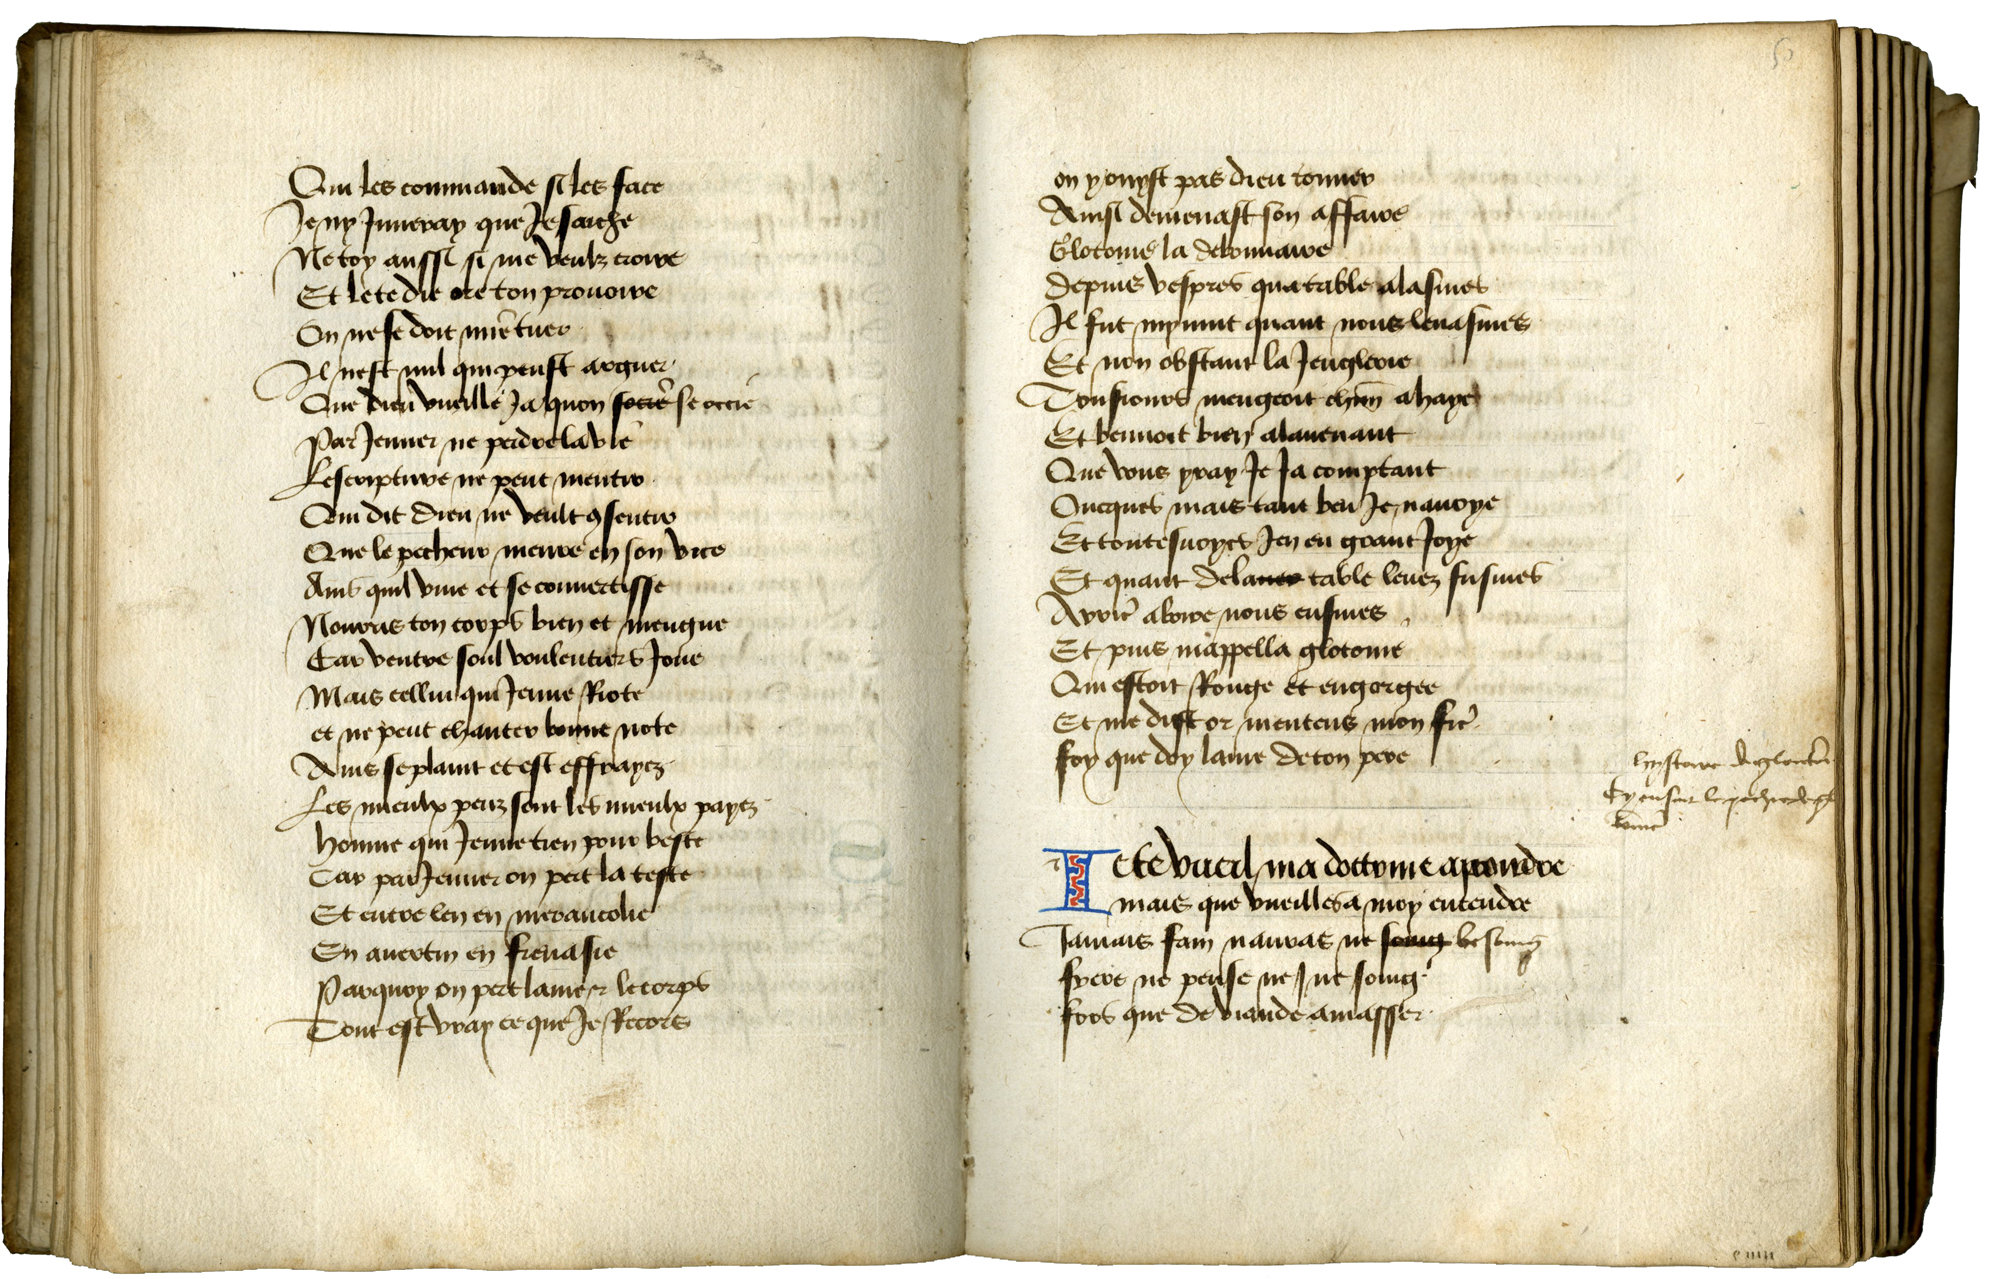 Qui les commande si les face
Je ny Juneray que Je sache
Ne toy aussi si me veulz croire
Et le te die ore ton prouoire
On ne se doit mie tuer
Il nest nul qui peust arguer
Que dieu vueille Ja quon socrie se occie
Par Jeuner ne perdre la vie
Lescripture ne peut mentir
Qui dit Dieu ne veult 9sentir
Que le pecheur meure en son vice
Ains quil viue et se conuertisse
Nourris ton corps bien et mengue
Car ventre soul voulentiers Joue
Mais cellui qui Jeune Riote
et ne peut chanter bonne note
Ains se plaint et est effrayez
Les mieulx peuz sont les mieulx payez
Homme qui Jeune tien pour beste
Car par Jeuner on pert la teste
Et entre len en merancolie
En auertin en frenasie
Parquoy on pert lame et le corps
Tout est vray ce que Je Recors
on y ouyst pas dieu tonner
Ainsi demenast son affaire
Glotonie la debonnaire
Depuis vespres qua table alasmes
Il fut mynuit quant nous leuasmes
Et non obstant la Jenglerie
Tousiours mengeoit chun a haye
Et beuuoit bien alauenant
Que vous yray Je Ja comptant
Oncques mais tant beu Je nauoye
Et toutesuoyes Jen eu grant Joye
Et quant dela table leuez fusmes
Apres aboire nous eusmes
Et puis mappella glotonie
Qui estoit Rouge et engorgee
Et me dist or menteus mon fit
foy que doy lame de ton pere
lystoire de glouton
Cy ensuit le pechie de gl
tonie
Je te vueil ma doctrine aprendre
mais que vueilles a moy entendre
Jamais fain nauras ne soing besoing
frere ne pense ne J ne soing
fors que de viande amasser